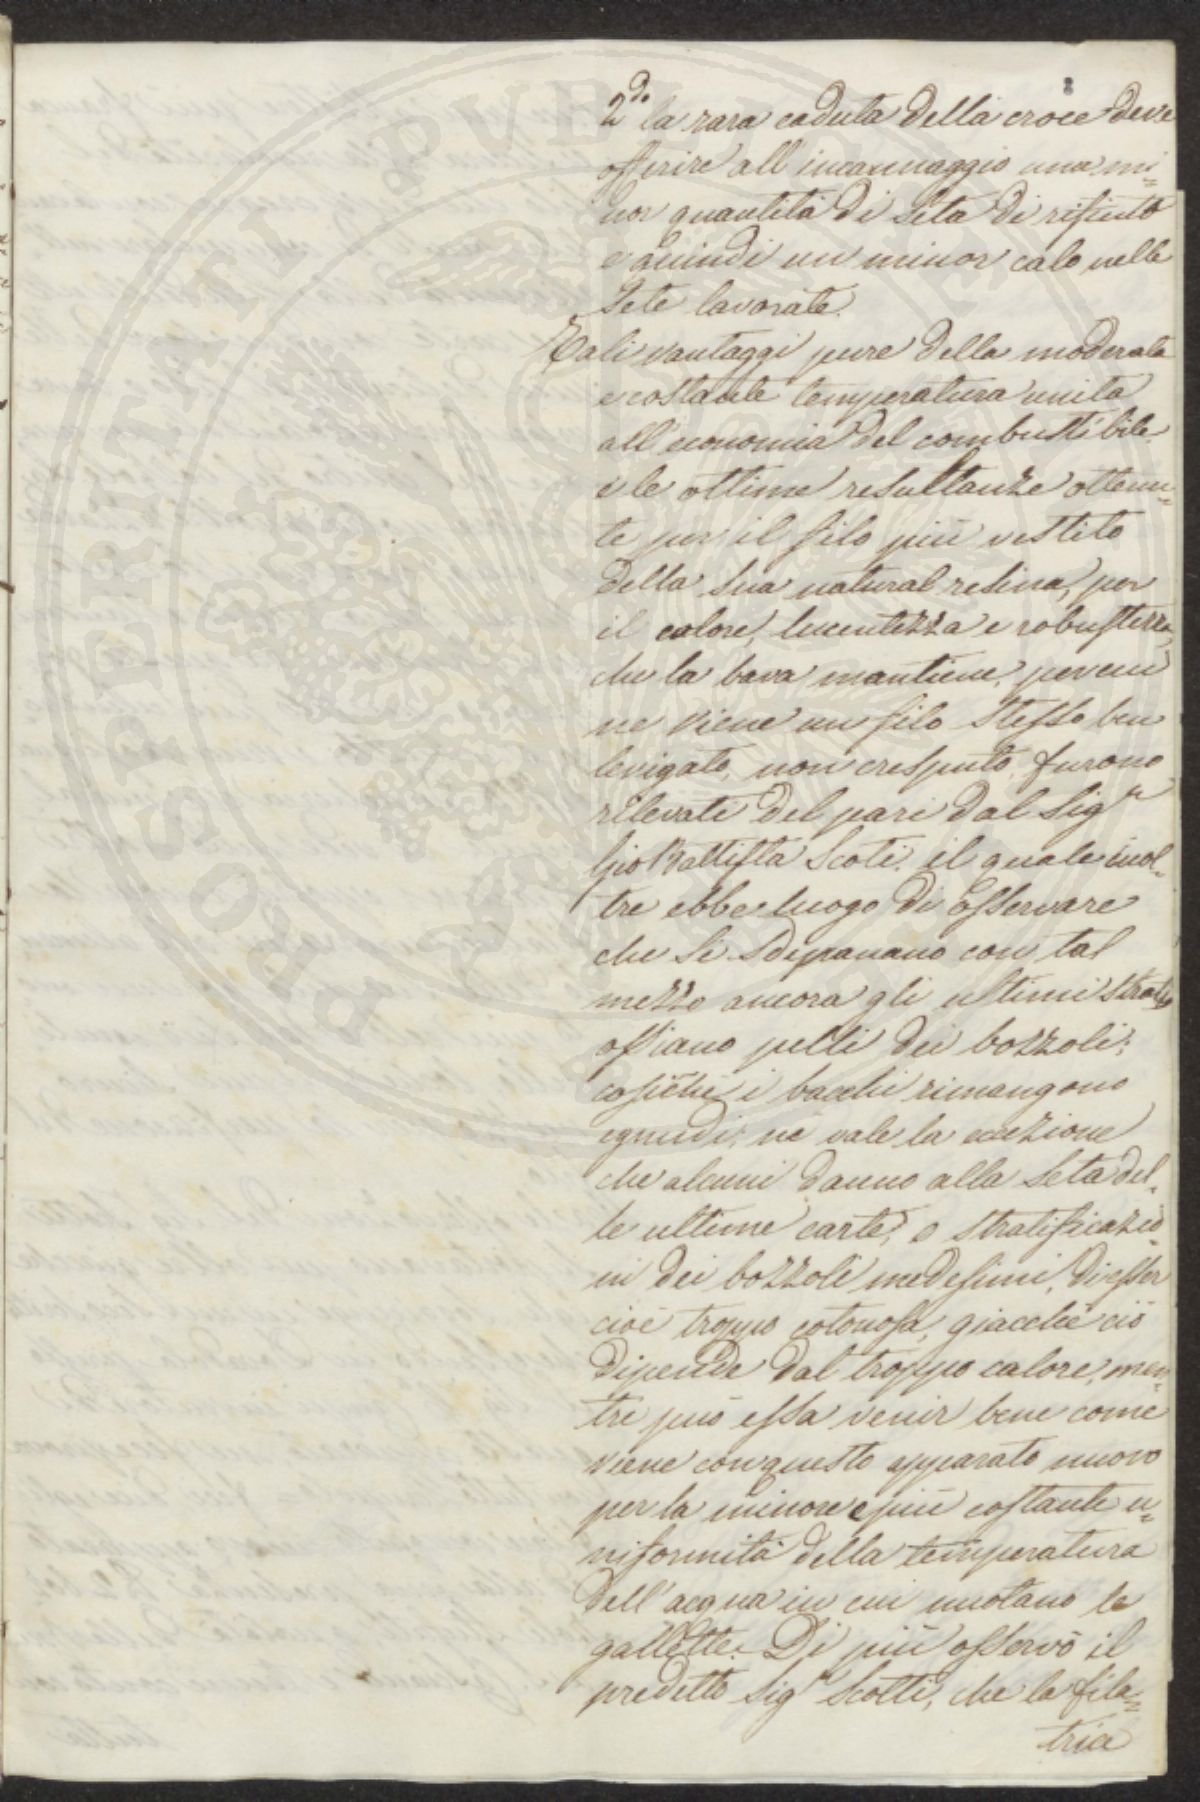 2.do la rara caduta della croce deve
offerire all'incannaggio una mi=
nor quantità di Seta di rifiuto
e quindi un minor calo nelle
Sete lavorate.
Tali vantaggi pure della moderata
e costante temperatura unita
all'economia del combustibile
e le ottime resultanze ottenu=
te per il filo più vestito
della sua natural resina, per
il calore, lucentezza e robustezza,
che la bava mantiene, per cui
ne viene un filo stesso ben
levigato, non cresputo, furono
rilevati del pari dal Sigr
Gio Battista Scoti. il quale inol=
tre ebbe luogo di osservare
che si sdipanano con tal
mezzo ancora gli ultimi strati,
ossiano pelli dei bozzoli;
cosichè i bacchi rimangono
ignudi; nè vale la eccezione
che alcuni danno alla Seta del=
le ultime carte, o stratificazio=
ni dei bozzoli medesimi, di esser
cioè troppo cotonosa, giacchè ciò
dipende dal troppo calore, men=
tre può essa venir bene come
viene con questo apparato nuovo
per la minore e più costante u=
niformità della temperatura
dell'acqua in cui nuotano le
gallette. Di più osservò il
predetto Sigr Scotti, che la fila=
trice
PROSPERITATI PVBLICAE